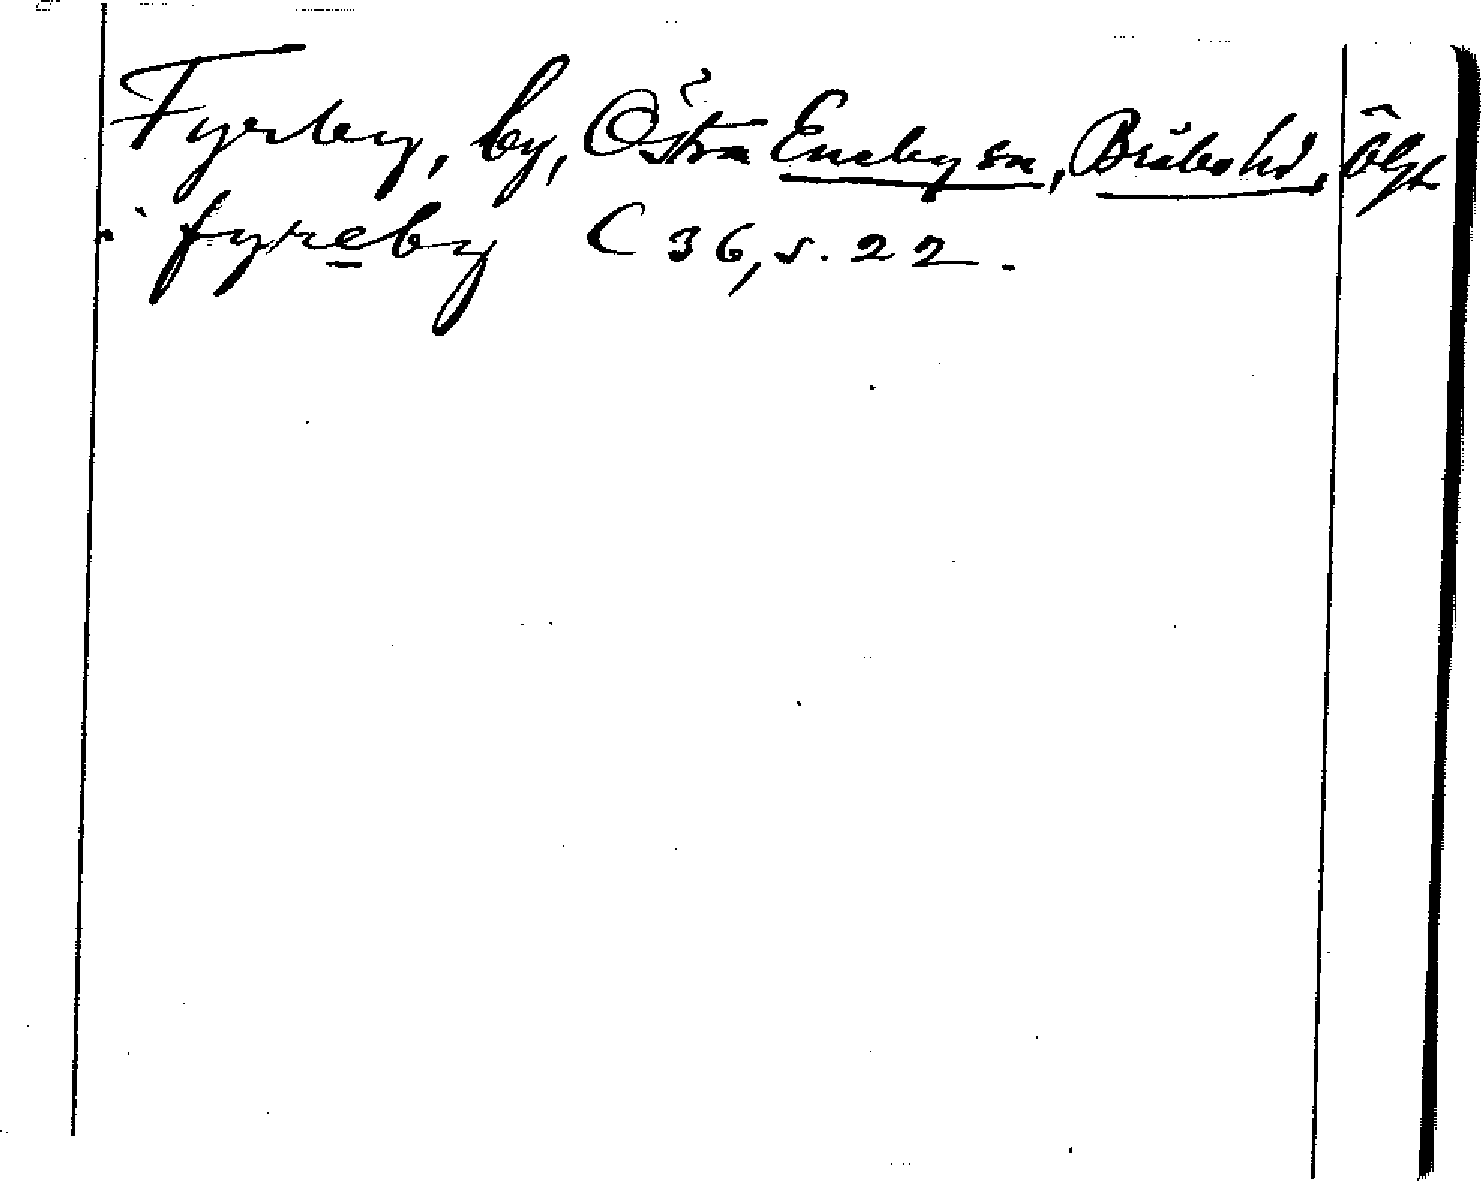 Fyrby, by, Östra Eneby sn, Bråbo hd, Ögl
i fyreby C 36, s. 22.